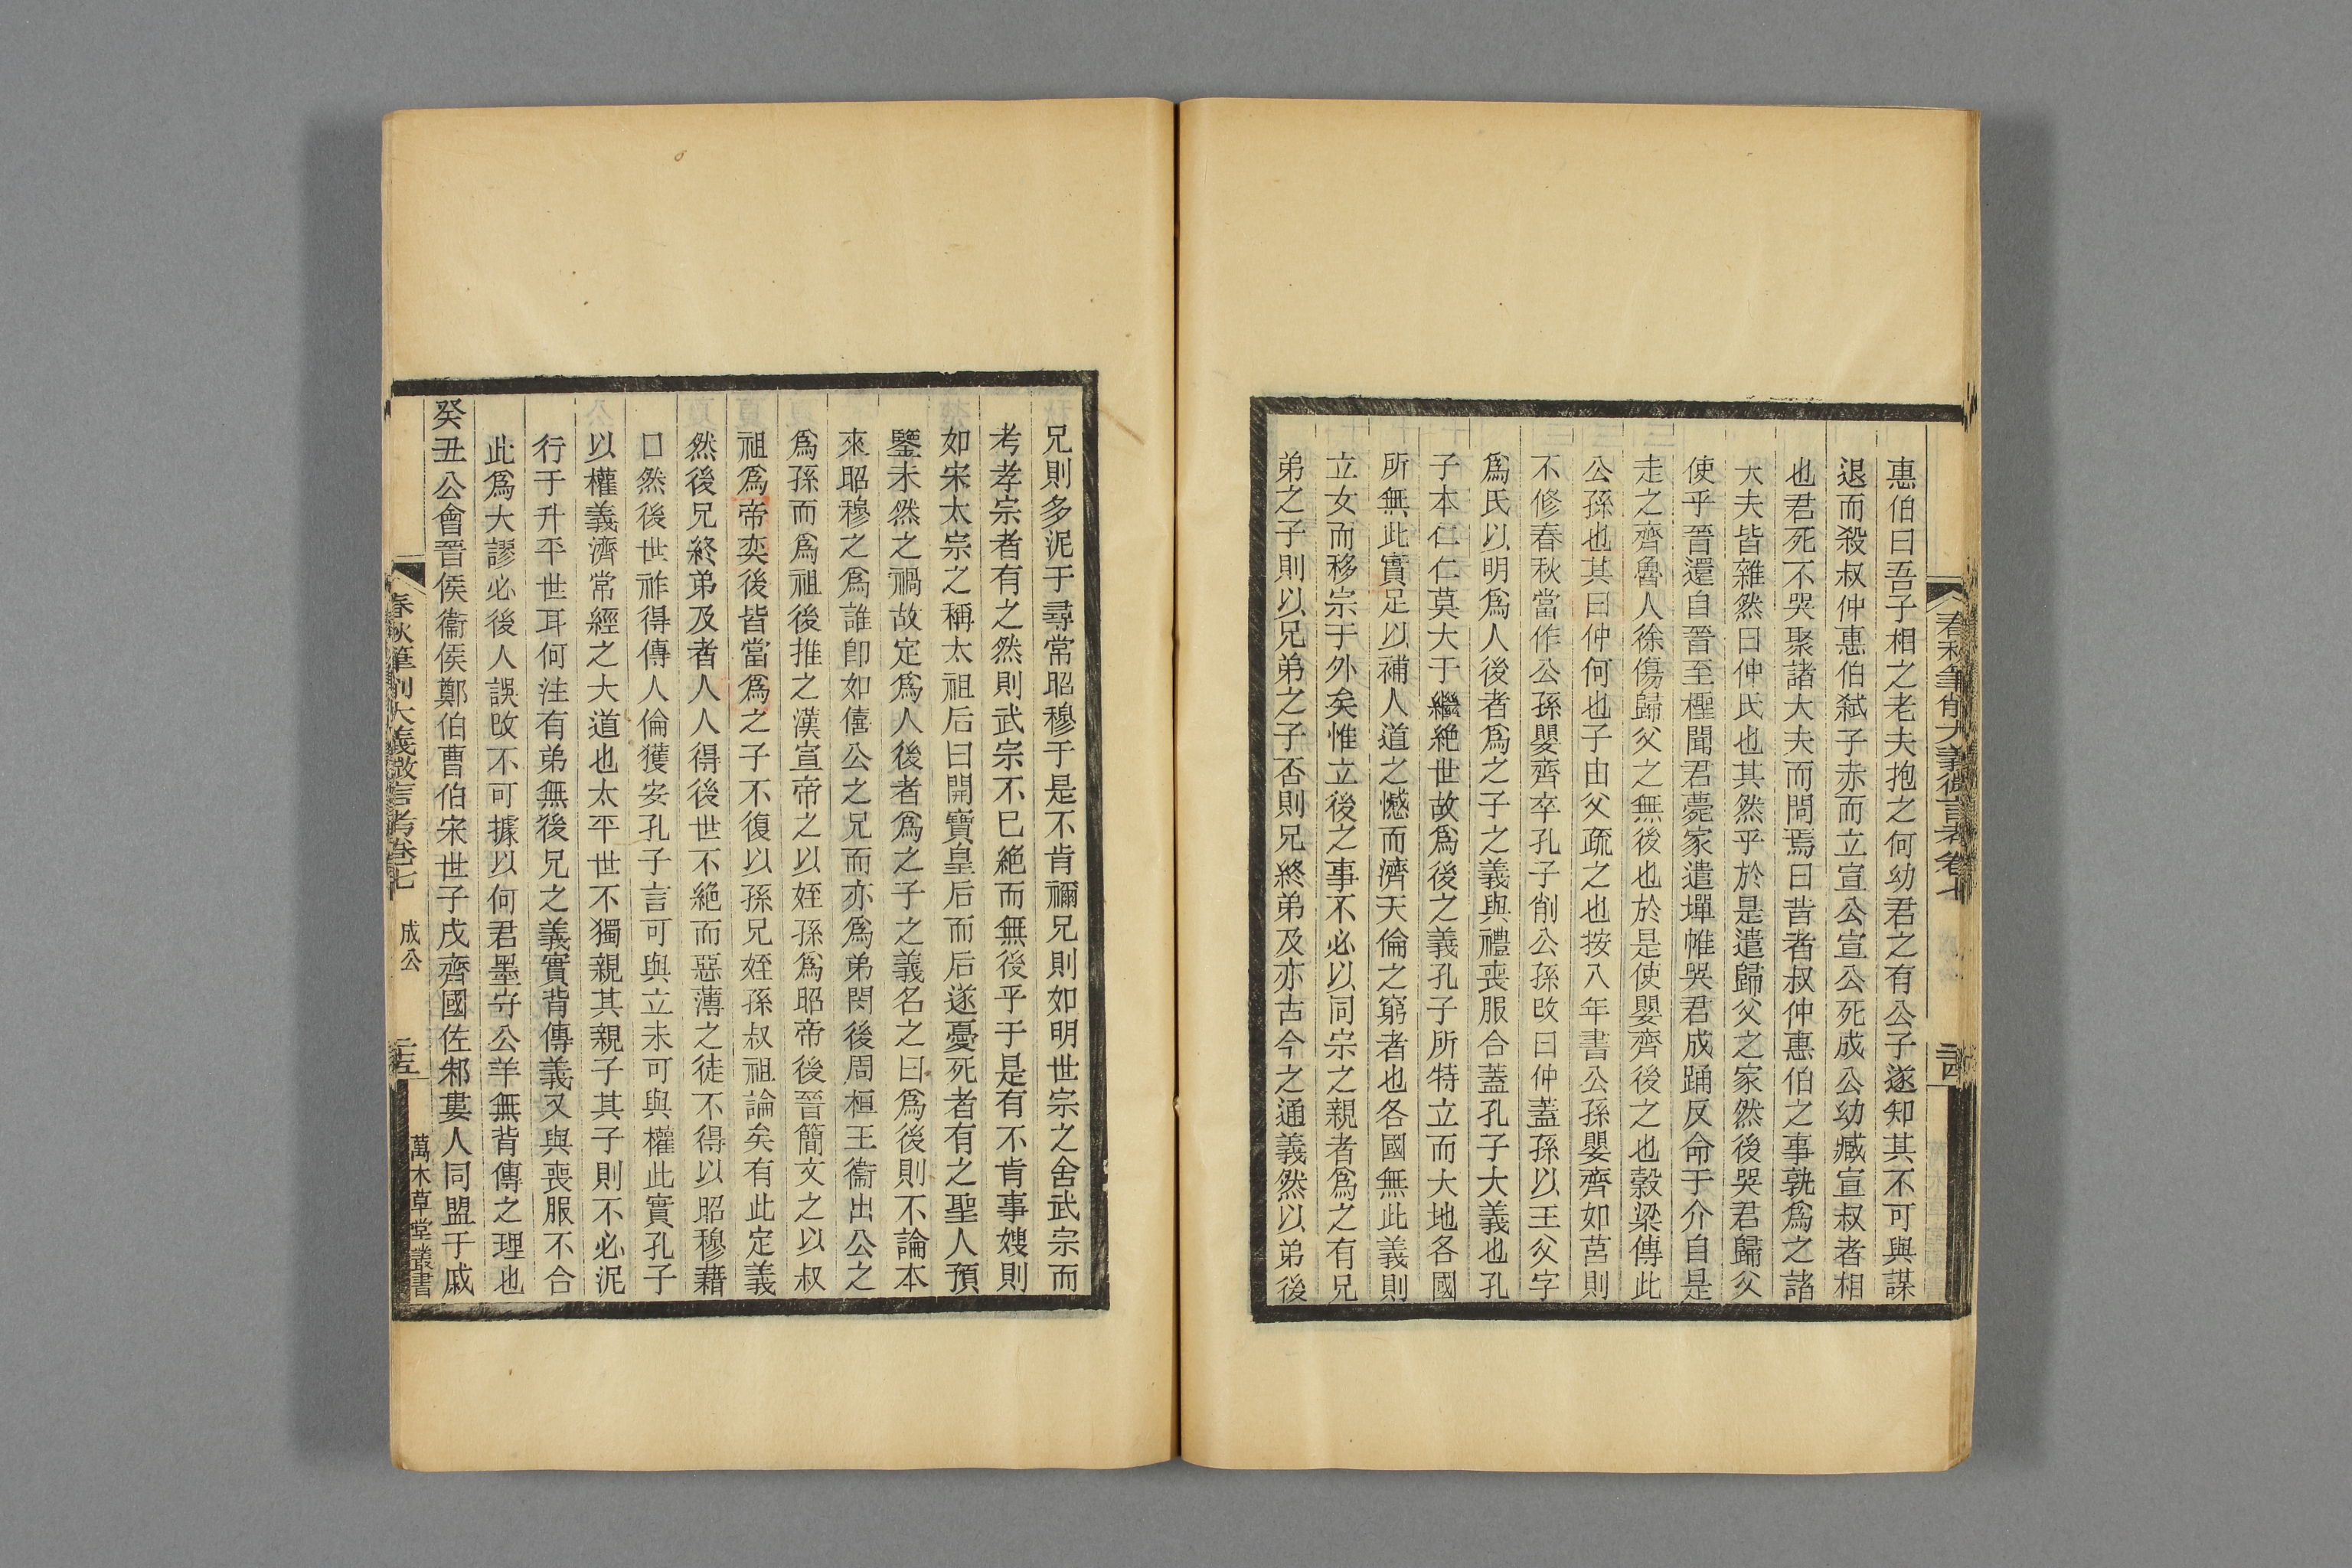 春秋筆削大義微言考卷七
惠伯曰吾子相之老夫抱之何幼君之有公子遂知其不可與謀
退而殺叔仲惠伯弑子赤而立宣公宣公死成公幼臧宣叔者相
也君死不哭聚諸大夫而問焉曰昔者叔仲惠伯之事孰爲之諸
大夫皆雜然曰仲氏也其然乎於是遣歸父之家然後哭君歸父
使乎晉還自晉至檉聞君薨家遣墠帷哭君成踊反命于介自是
走之齊魯人徐傷歸父之無後也於是使嬰齊後之也穀梁傳此
公孫也其曰仲何也子由父疏之也按八年書公孫嬰齊如莒則
不修春秋當作公孫嬰齊卒孔子削公孫改曰仲蓋孫以王父字
爲氏以明爲人後者爲之子之義與禮喪服合蓋孔子大義也孔
子本仁仁莫大于繼絶世故爲後之義孔子所特立而大地各國
所無此實足以補人道之憾而濟天倫之窮者也各國無此義則
立女而移宗于外矣惟立後之事不必以同宗之親者爲之有兄
弟之子則以兄弟之子否則兄終弟及亦古今之通義然以弟後
兄則多泥于尋常昭穆于是不肯禰兄則如明世宗之舍武宗而
考孝宗者有之然則武宗不已絶而無後乎于是有不肯事嫂則
如宋太宗之稱太祖后曰開寶皇后而后遂憂死者有之聖人預
鑒未然之禍故定爲人後者爲之子之義名之曰爲後則不論本
來昭穆之爲誰卽如僖公之兄而亦爲弟閔後周桓王衞出公之
爲孫而爲祖後推之漢宣帝之以姪孫爲昭帝後晉簡文之以叔
祖爲帝奕後皆當爲之子不復以孫兄姪孫叔祖論矣有此定義
然後兄終弟及者人人得後世不絶而惡薄之徒不得以昭穆藉
口然後世祚得傳人倫獲安孔子言可與立未可與權此實孔子
以權義濟常經之大道也太平世不獨親其親子其子則不必泥
行于升平世耳何注有弟無後兄之義實背傳義又與喪服不合
此爲大謬必後人誤改不可據以何君墨守公羊無背傳之理也
癸丑公會晉侯衞侯鄭伯曹伯宋世子戍齊國佐邾婁人同盟于戚
春秋筆削大義微言考卷七
成公
萬木草堂叢書